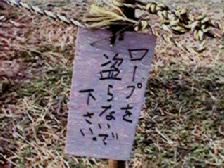 ロープを
盗らないで
下さい。